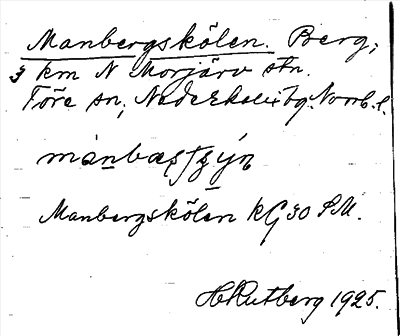 Manbergskölen. Berg,
3 km N Morjärv stn.
Töre sn, Nederkalix tg. Norrb. l.
Manbergskölen kG 30 SM.
H Rutberg 1925.